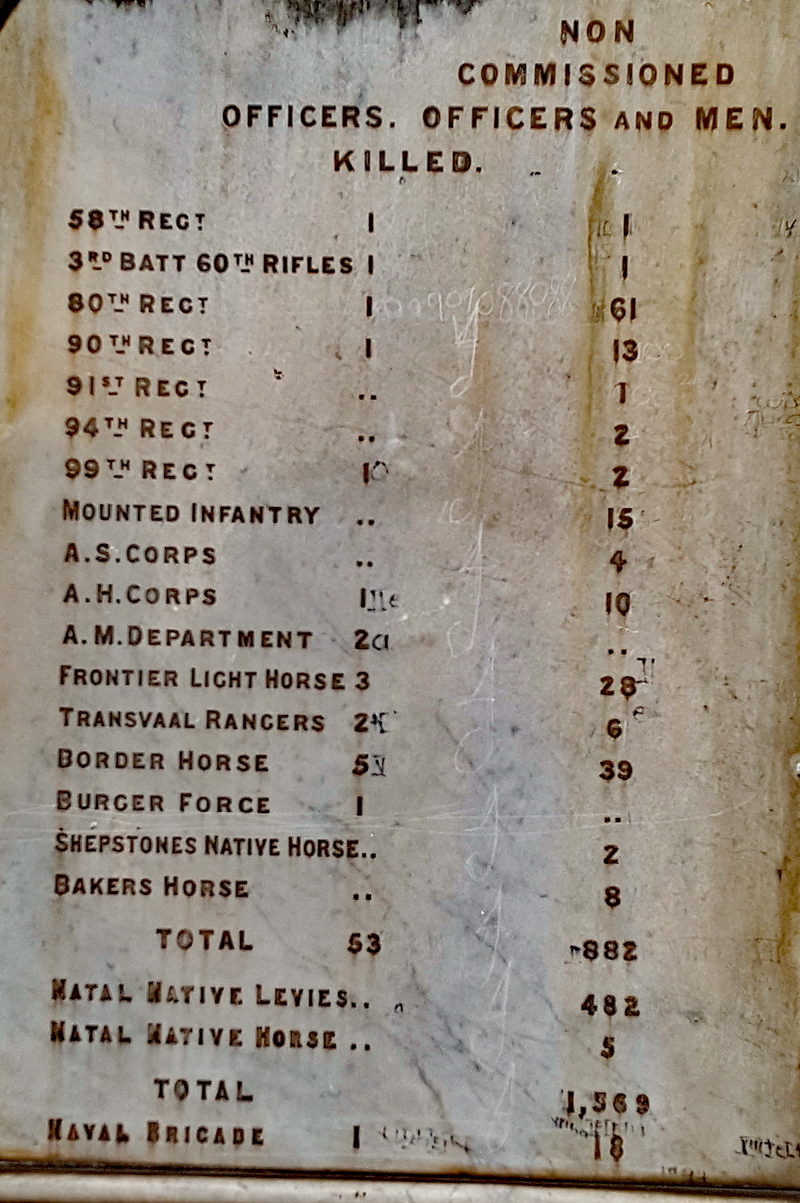 NON
COMMISSIONED
OFFICERS. OFFICERS AND MEN.
KILLED.
58TH REGT 1 1
3RD BATT 60TH RIFLES 1 1
80TH REGT 1 61
90TH REGT 1 13
91ST REGT .. 1
94TH REGT .. 2
99TH REGT 1 2
MOUNTED INFANTRY .. 15
A.S.CORPS .. 4
A.H.CORPS 1 10
A.M.DEPARTMENT 2 ..
FRONTIER LIGHT HORSE 3 28
TRANSVAAL RANGERS 2 6
BORDER HORSE 5 39
BURGER FORCE 1 ..
SHEPSTONES NATIVE HORSE.. 2
BAKERS HORSE .. 8
TOTAL 53 882
NATAL NATIVE LEVIES.. 482
NATAL NATIVE HORSE .. 5
TOTAL 1,369
NAVAL BRIGADE 1 18